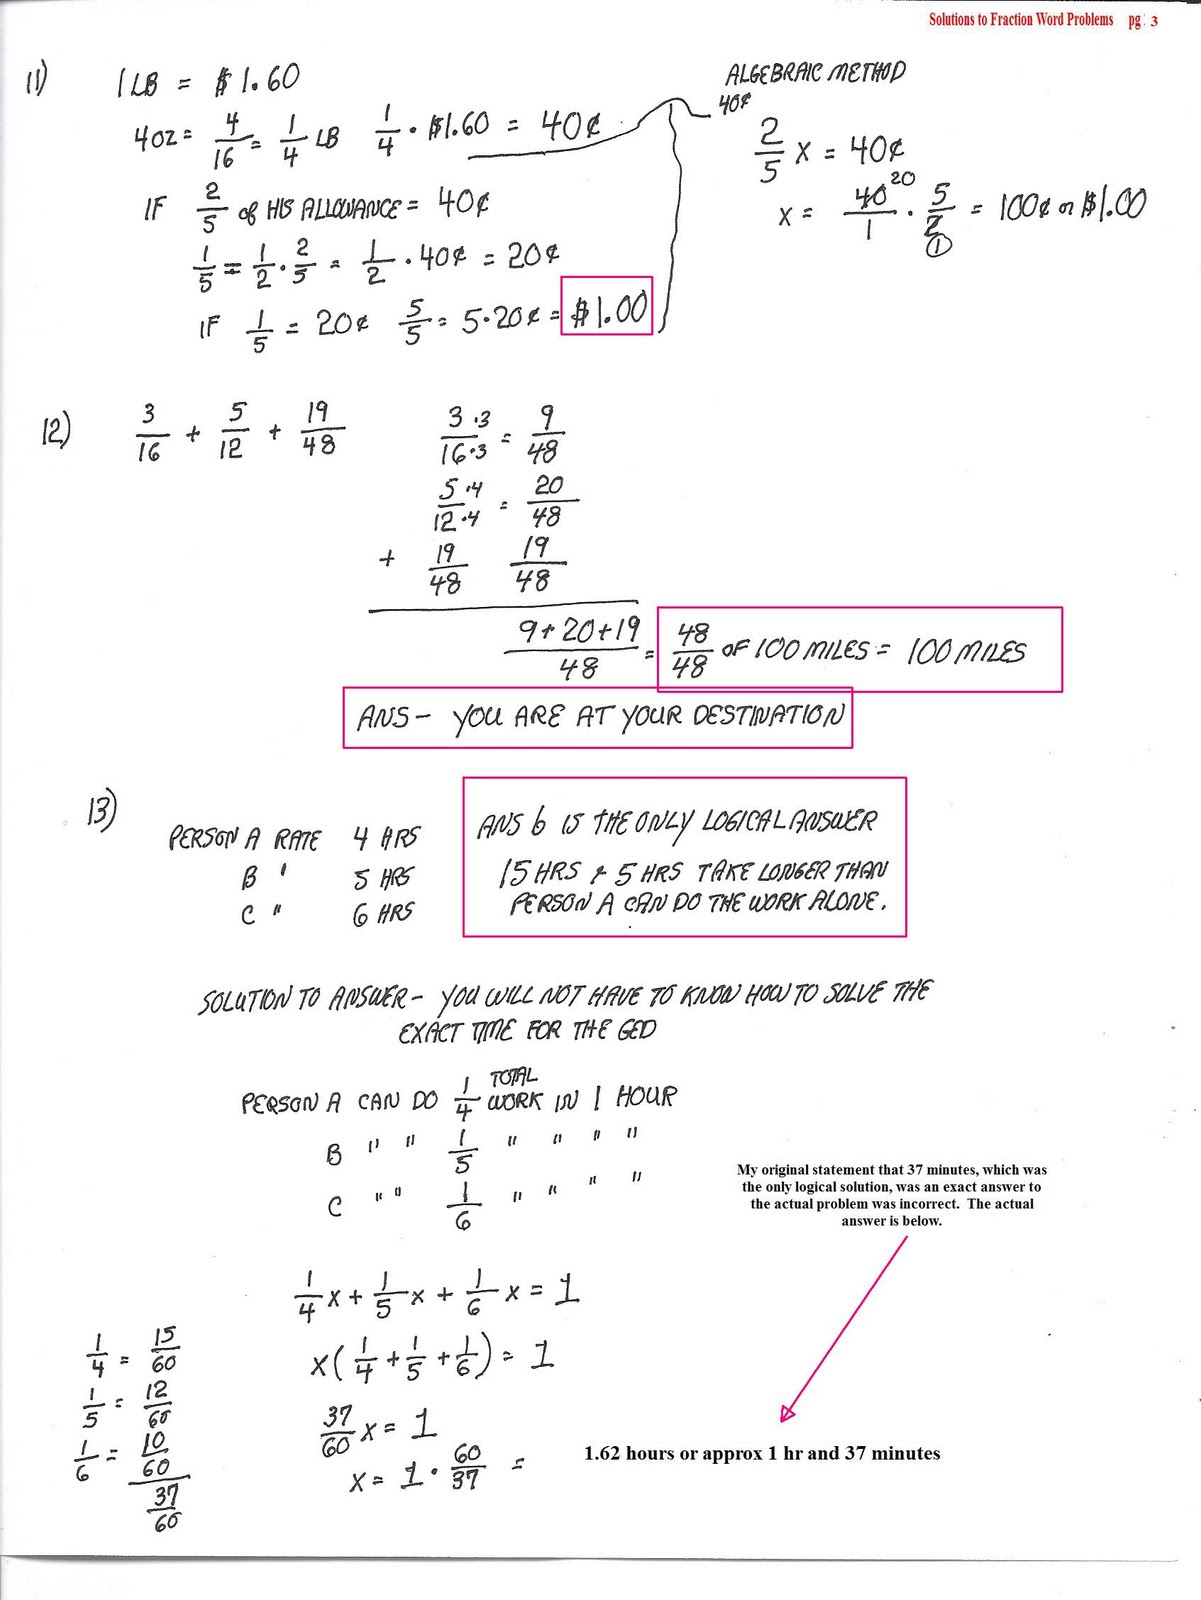 Solutions to Fraction Word Problems pg. 3
11) 1 LB = $1.60
4OZ = 4/16 = 1/4 LB 1/4 · $1.60 = 40¢
IF 2/5 of HIS ALLOWANCE = 40¢
1/5 = 1/2 · 2/5 = 1/2 · 40¢ = 20¢
IF 1/5 = 20¢ 5/5 = 5·20¢ = $1.00
ALGEBRAIC METHOD
40¢
2/5 X = 40¢
X = 40 20/1 · 5/2 1 = 100¢ or $1.00
12) 3/16 + 5/12 + 19/48
3·3/16·3 = 9/48
5·4/12·4 = 20/48
+ 19/48 19/48
9+20+19/48 = 48/48 OF 100 MILES = 100 MILES
ANS - YOU ARE AT YOUR DESTINATION
13)
PERSON A RATE 4 HRS
B " 5 HRS
C " 6 HRS
ANS b IS THE ONLY LOGICAL ANSWER
15 HRS & 5 HRS TAKE LONGER THAN
PERSON A CAN DO THE WORK ALONE.
SOLUTION TO ANSWER - YOU WILL NOT HAVE TO KNOW HOW TO SOLVE THE
EXACT TIME FOR THE GED
PERSON A CAN DO 1/4 TOTAL WORK IN 1 HOUR
B " " 1/5 " " " "
C " " 1/6 " " " "
My original statement that 37 minutes, which was
the only logical solution, was an exact answer to
the actual problem was incorrect. The actual
answer is below.
1/4 X + 1/5 X + 1/6 X = 1
X(1/4 + 1/5 + 1/6) = 1
37/60 X = 1
X = 1 · 60/37 =
1.62 hours or approx 1 hr and 37 minutes
1/4 = 15/60
1/5 = 12/60
1/6 = 10/60
37/60